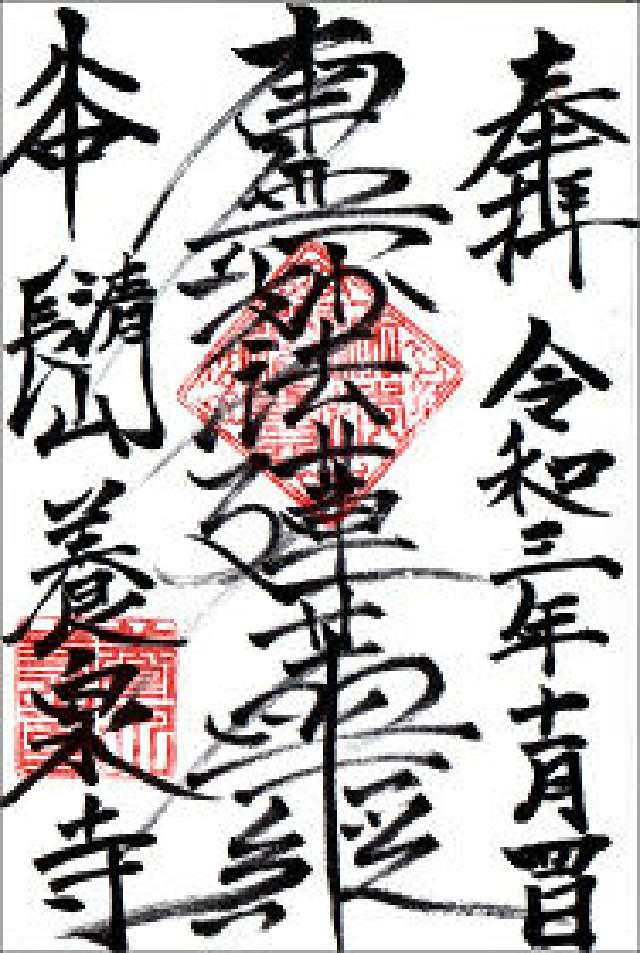 奉拝 令和三年十一月四日
南無妙法蓮華經
本 長清山 養泉寺